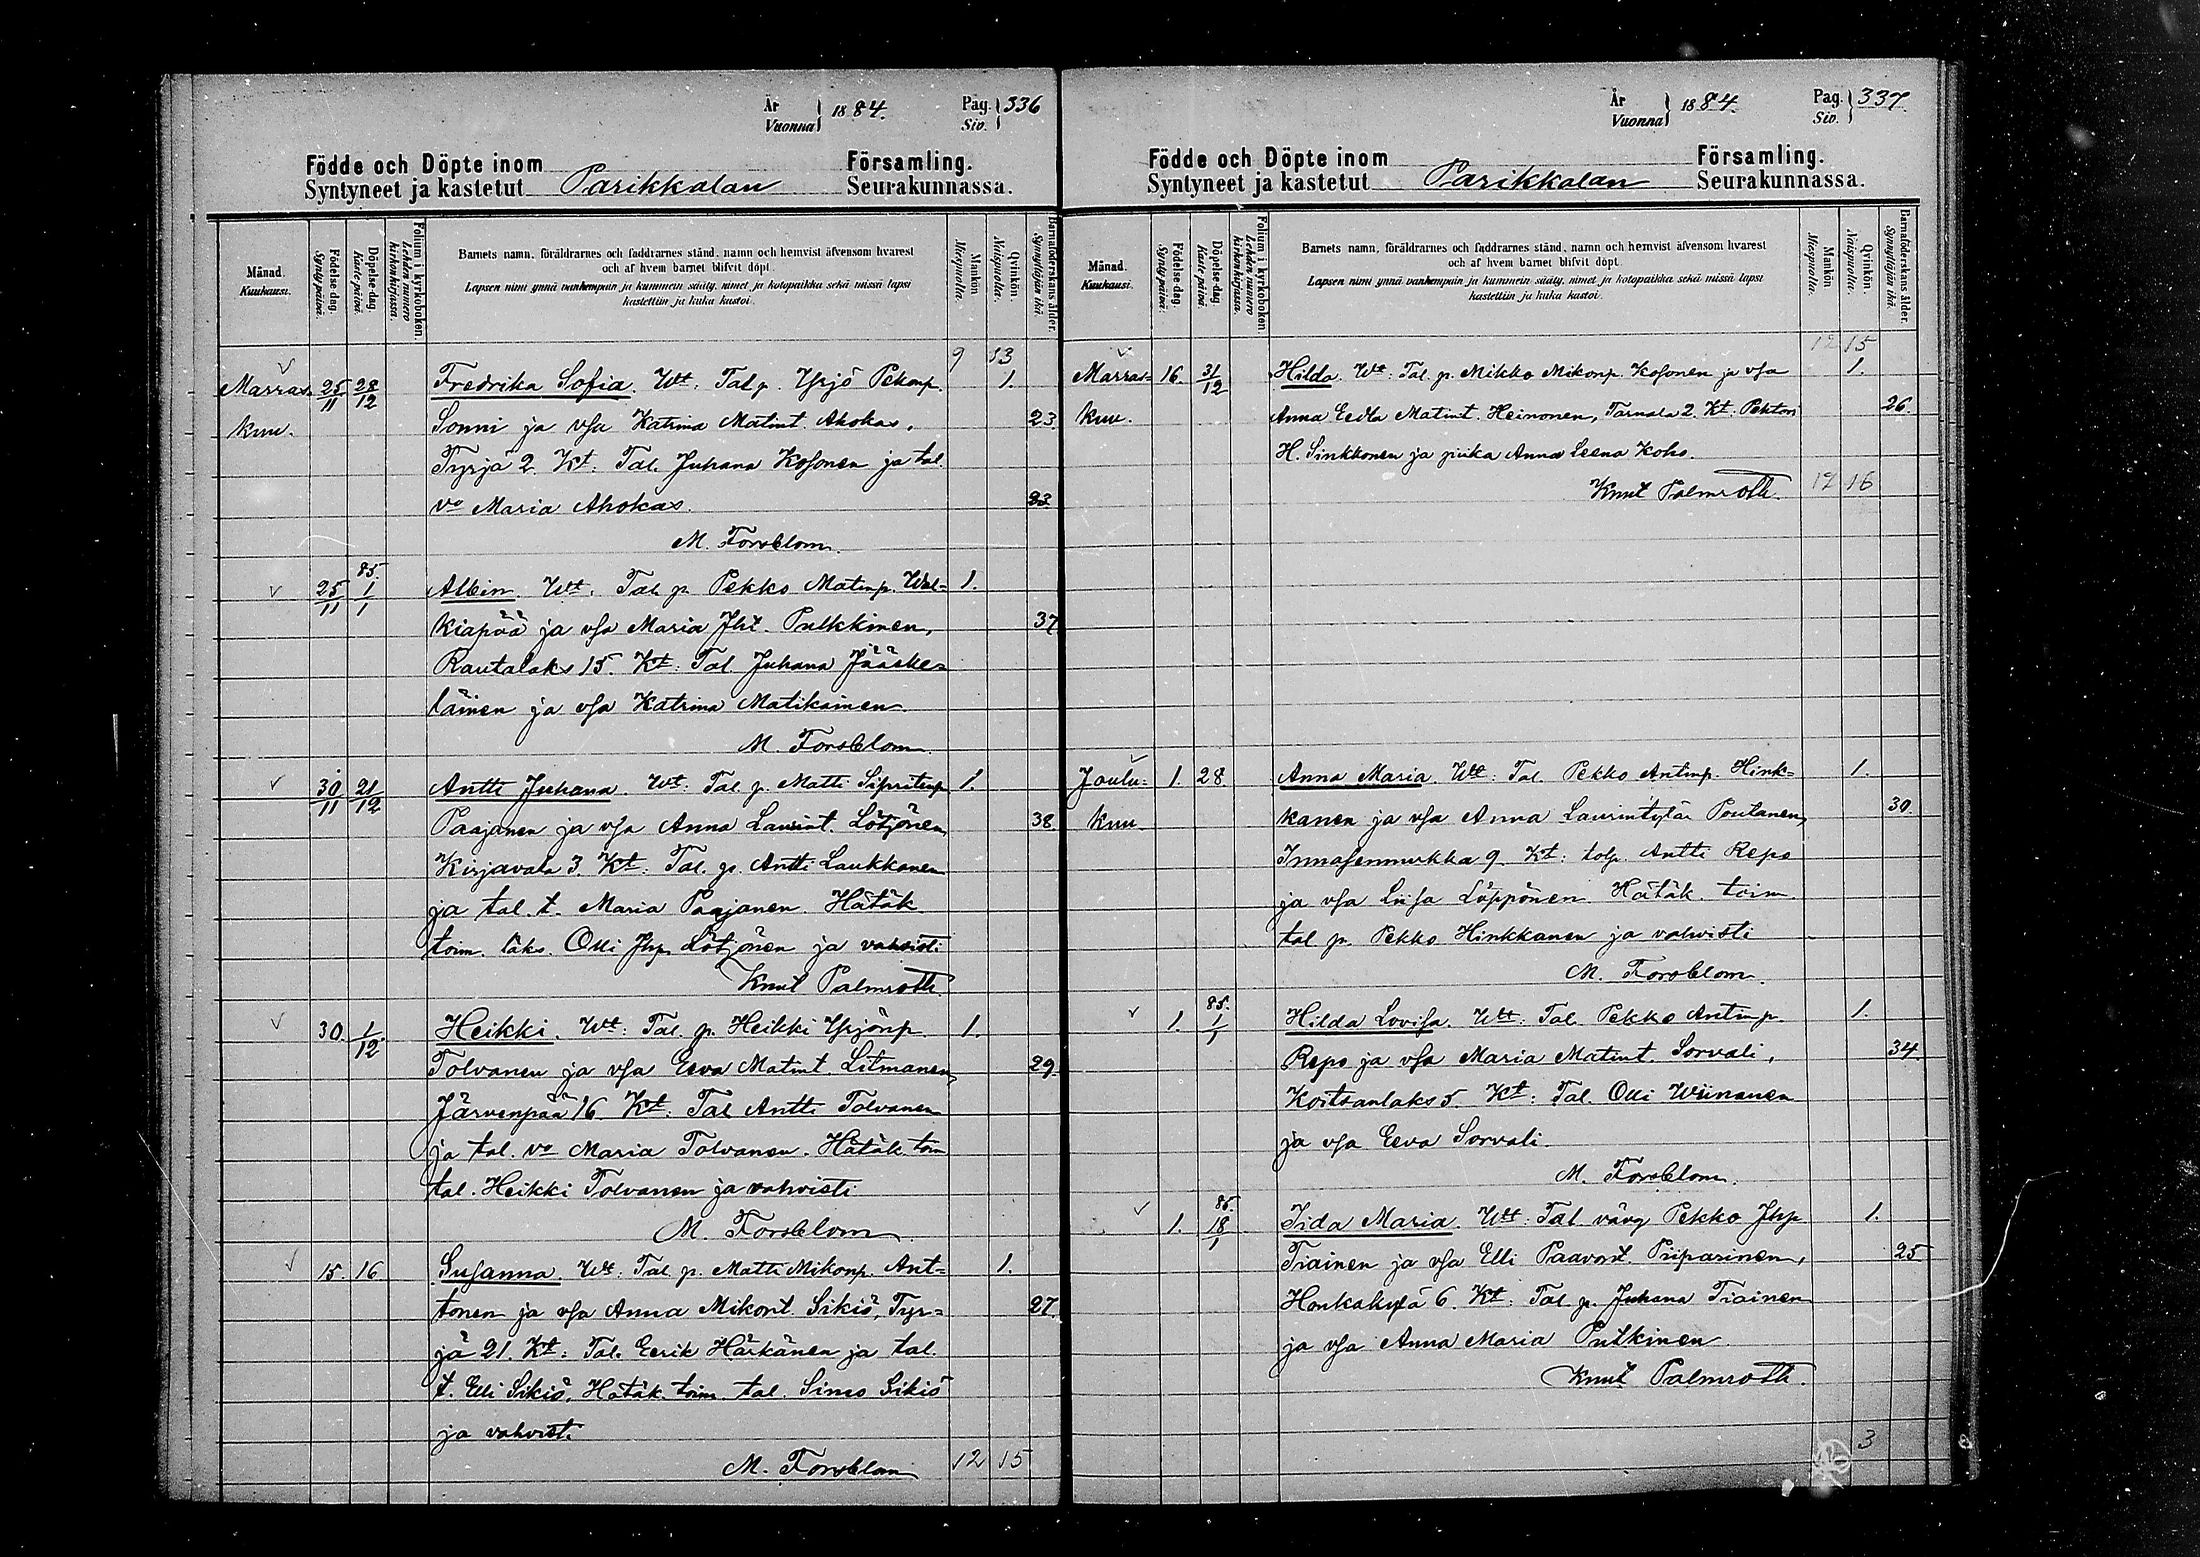 År Vuonna } 1884. Pag. Siv. } 336
Födde och Döpte inom Församling.
Syntyneet ja kastetut Parikkalan Seurakunnassa.
Månad. Kuukausi.
Födelse-dag. Syntypäivä.
Döpelse-dag. Kastepäivä.
Folium i kyrkoboken. Lehden numero kirkonkirjassa.
Barnets namn, föräldrarnes och faddrarnes stånd, namn och hemvist äfvensom hvarest
och af hvem barnet blifvit döpt.
Lapsen nimi ynnä vanhempain ja kummein sääty, nimet ja kotopaikka sekä missä lapsi
kastettiin ja kuka kastoi.
Mankön Miespuolia.
Qvinkön. Naispuolia.
Barnaföderskans ålder. Synnyttäjän ikä.
9 13
Marras- 25/11 28/12 Fredrika Sofia. Wt. Tal. p. Yrjö Pekanp. 1.
kuu. Sonni ja vsa Katrina Matint. Ahokas, 23.
Tyrjä 2. Kt: Tal. Juhana Kosonen ja tal.
vo Maria Ahokas. 23
M. Forsblom.
85.
25/11 1/1 Albin. Wt. Tal. p. Pekko Matinp. Wal= 1.
kiapää ja vsa Maria Jht. Pulkkinen, 37
Rautalaks 15. Kt: Tal. Juhana Jääske=
läinen ja vsa Katrina Matikainen.
M. Forsblom.
30/11 21/12 Antti Juhana. Wt: Tal. p. Matti Sipritinp. 1.
Paajanen ja vsa Anna Laurint. Lötjönen, 38.
Kirjavala 3. Kt: Tal. p. Antti Laukkanen
ja tal. t. Maria Paajanen. Hätäk.
toim. läks. Olli Jhp. Lötjönen ja vahvisti
Knut Palmroth.
30. 1/12 Heikki. Wt: Tal. p. Heikki Yrjönp. 1.
Tolvanen ja vsa Eeva Matint. Litmanen, 29.
Järvenpää 16. Kt: Tal. Antti Tolvanen
ja tal. vo Maria Tolvanen. Hätäk. toim
tal. Heikki Tolvanen ja vahvisti
M. Forsblom
15. 16 Susanna. Wt: Tal. p. Matti Mikonp. Ant= 1.
tonen ja vsa Anna Mikont. Sikiö, Tyr= 27.
jä 21. Kt: Tal. Eerik Härkänen ja tal.
t. Elli Sikiö. Hätäk. toim. tal. Simo Sikiö
ja vahvist.
M. Forsblom 12 15
År Vuonna } 1884. Pag. Siv. } 337.
Födde och Döpte inom Församling.
Syntyneet ja kastetut Parikkalan Seurakunnassa.
Månad. Kuukausi.
Födelse-dag. Syntypäivä.
Döpelse-dag. Kastepäivä.
Folium i kyrkoboken. Lehden numero kirkonkirjassa.
Barnets namn, föräldrarnes och faddrarnes stånd, namn och hemvist äfvensom hvarest
och af hvem barnet blifvit döpt.
Lapsen nimi ynnä vanhempain ja kummein sääty, nimet ja kotopaikka sekä missä lapsi
kastettiin ja kuka kastoi.
Mankön Miespuolia.
Qvinkön. Naispuolia.
Barnaföderskans ålder. Synnyttäjän ikä.
12 15
Marras- 16. 31/12 Hilda. Wt: Tal. p. Mikko Mikonp. Kosonen ja vsa 1.
kuu. Anna Eedla Matint. Heinonen, Tarnala 2. Kt. 26.
H. Sinkkonen ja piika Anna Leena Koho.
Knut Palmroth. 12 16
Joulu- 1. 28. Anna Maria. Wt: Tal. Pekko Antinp. Hink= 1.
kuu. kanen ja vsa Anna Laurintytär Poutanen, 30.
Innasennurkka 9. Kt: tolp. Antti Repo
ja vsa Liisa Löppönen. Hätäk. toim.
tal. p. Pekko Hinkkanen ja vahvisti
M. Forsblom.
85.
1. 1/1 Hilda Lovisa. Wt: Tal. Pekko Antinp. 1.
Repo ja vsa Maria Matint. Sorvali, 34.
Koitsanlaks 5. Kt: Tal. Olli Wiinanen
ja vsa Eeva Sorvali.
M. Forsblom.
85.
1. 18/1 Iida Maria. Wt: Tal. vävy Pekko Jhp 1.
Tiainen ja vsa Elli Paavont. Piiparinen, 25
Honkakylä 6. Kt: Tal. p. Juhana Tiainen
ja vsa Anna Maria Putkinen.
Knut Palmroth.
3